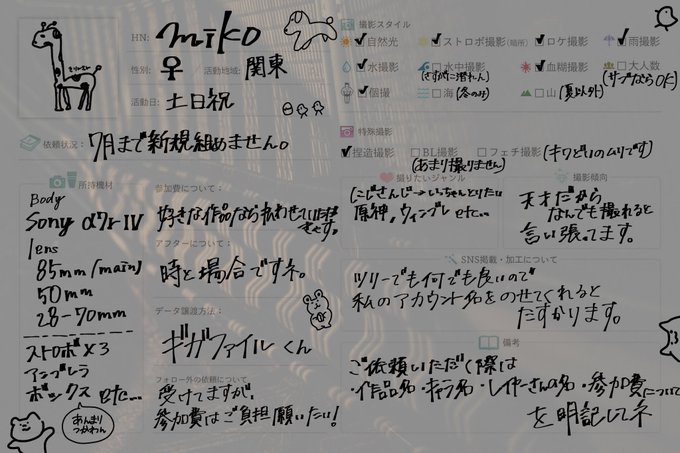 きりんさん
HN: miko
性別: ♀ / 活動地域: 関東
活動日: 土日祝
依頼状況: 7月まで新規組めません。
撮影スタイル
自然光 ストロボ撮影(暗所) ロケ撮影 雨撮影
水撮影 水中撮影 血糊撮影 大人数
(さすがに潜れん) (サブならOK)
個撮 海 (冬のみ) 山 (夏以外)
特殊撮影
捏造撮影 BL撮影 フェチ撮影 (キワどいのムリです)
(あまり撮りません)
所持機材
Body
Sony α7rIV
lens
85mm(main)
50mm
28-70mm
ストロボ×3
アンブレラ
ボックス etc...
あんまり
つかわん
参加費について:
好きな作品なら払わせていただきます。
アフターについて:
時と場合ですネ。
データ譲渡方法:
ギガファイルくん
フォロー外の依頼について
受けてますが、
参加費はご負担願いたい!
撮りたいジャンル
にじさんじ→いっちゃんとりたい
原神,ウィンブレ etc...
撮影傾向
天才だから
なんでも撮れると
言い張ってます。
SNS掲載・加工について
ツリーでも何でも良いので
私のアカウント名をのせてくれると
たすかります。
備考
ご依頼いただく際は
・作品名・キャラ名・レイヤーさんの名・参加費について
を明記してネ